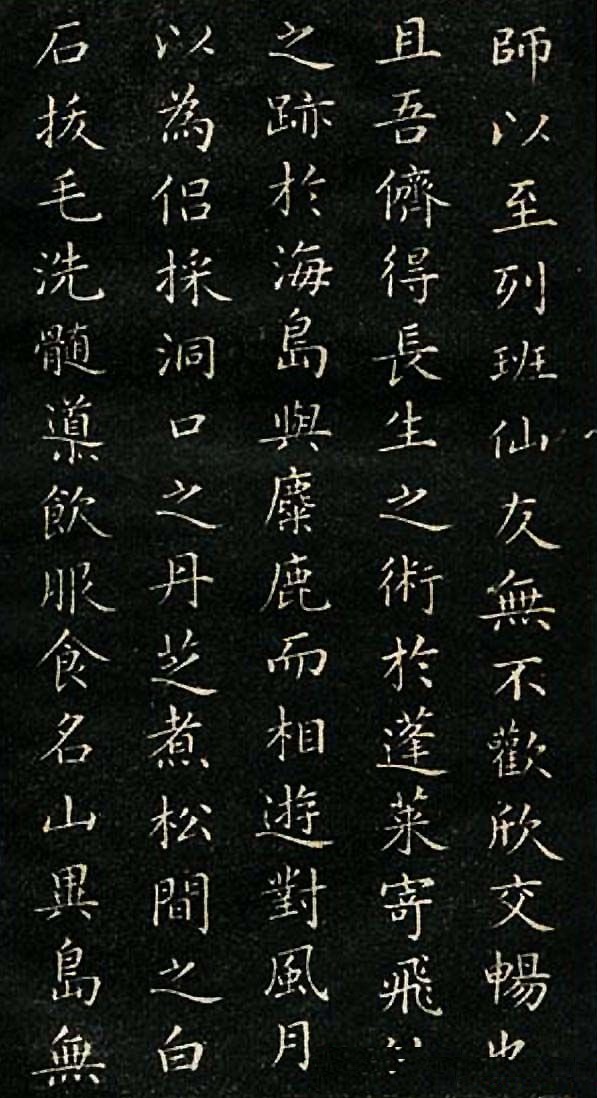 師以至列班仙友無不歡欣交暢
且吾儕得長生之術於蓬萊寄飛
之跡於海島與麋鹿而相遊對風月
以為侶採洞口之丹芝煮松間之白
石拔毛洗髓導飲服食名山異島無